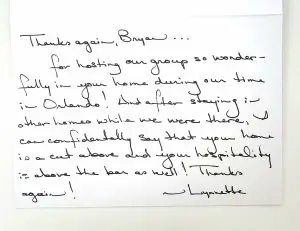 Thanks again, Bryan...
for hosting our group so wonder-
fully in your home during our time
in Orlando! And after staying in
other homes while we were there, I
can confidentally say that your home
is a cut above and your hospitality
is above the bar as well! Thanks
again! ~Lynnette